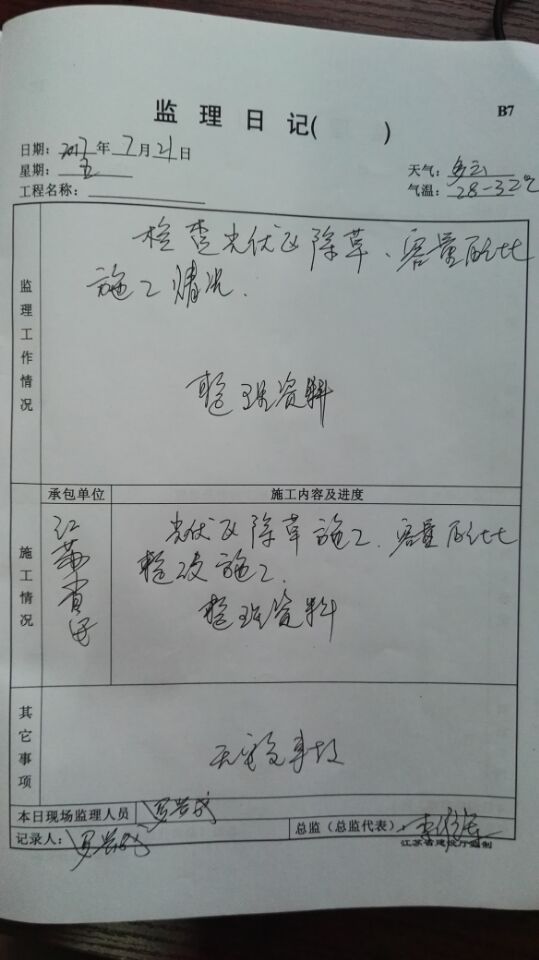 B7
监理日记( )
日期：2017年7月21日
星期：五
天气：多云
工程名称：
气温：28-32℃
监理工作情况
检查光伏区除草、容量配比
施工情况.
整理资料
承包单位
施工内容及进度
施工情况
江苏省
光伏区除草施工.容量配比
整改施工.
整理资料
其它事项
无安全事故
本日现场监理人员
总监（总监代表）：
记录人：
江苏省建设厅监制